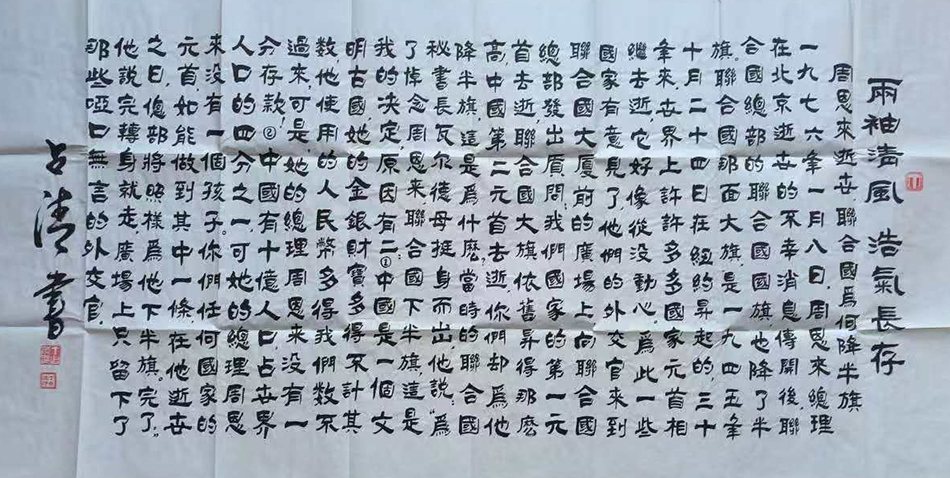 兩袖清風 浩氣長存
周恩來逝世聯合國爲何降半旗
一九七六年一月八日，周恩來總理
在北京逝世的不幸消息傳開後，聯
合國總部的聯合國國旗，也降了半
旗。聯合國那面大旗，是一九四五年
十月二十四日在經約昇起的，三十
年來，世界上許許多多國家元首相
繼去逝，它好像從没動心。爲此一些
國家有意見了，他們的外交官來到
聯合國大厦前的廣場上，向聯合國
總部發出質問：我們國家的第一元
首去逝，聯合國大旗依舊昇得那麽
高，中國第二元首去逝，你們却爲他
降半旗，這是爲什麽？當時的聯合國
秘書長瓦尔德母挺身而出，他說："爲
了悼念周恩來，聯合國下半旗，這是
我的决定，原因有二：①中國是一個文
明古國，她的金銀財寶多得不計其
數，他使用的人民幣多得我們數不
過來，可是，她的總理周恩來没有一
分存款！②中國有十億人口，占世界
人口的四分之一，可她的總理周恩
來没有一個孩子。你們任何國家的
元首，如能做到其中一條，在他逝世
之日，總部將照樣爲他下半旗。完了。"
他說完轉身就走，廣場上只留下了
那些啞口無言的外交官。
占清書